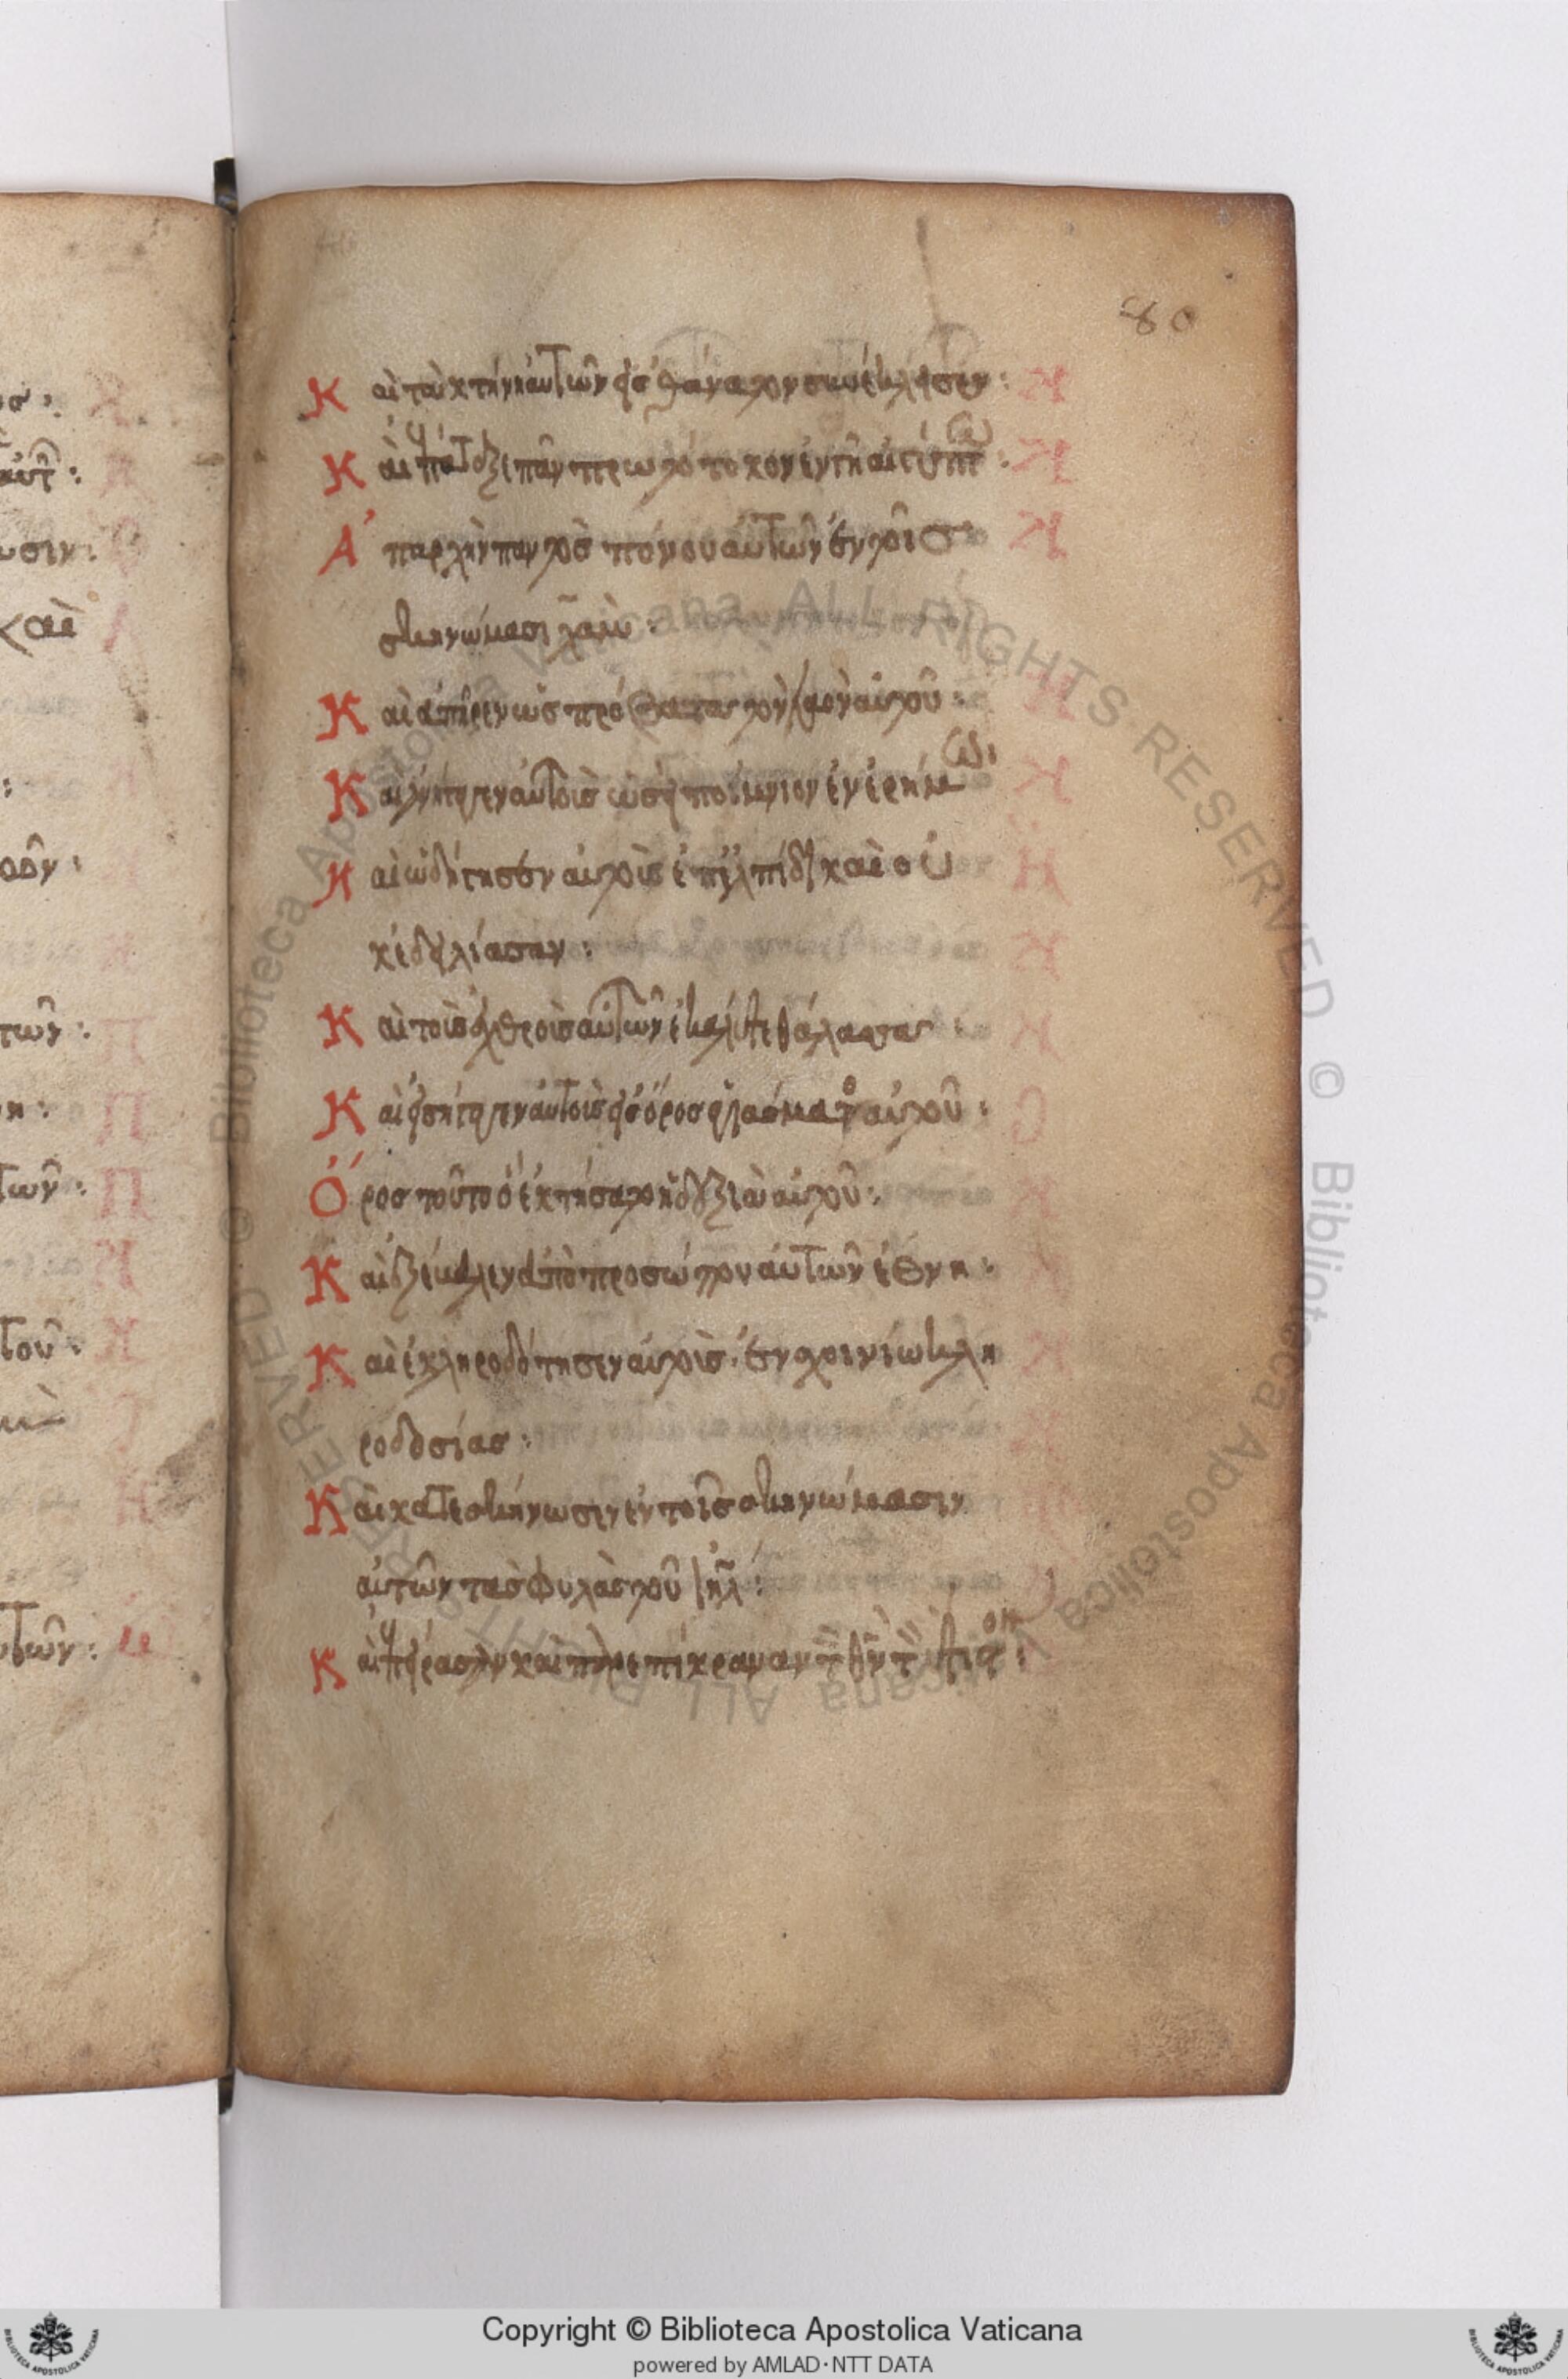 80
Καὶ τὰ κτήνη αὐτῶν εἰς θάνατον συνέκλεισεν :
Καὶ ἐπάταξε πᾶν πρωτότοκον ἐν γῆ αἰγύπτω :
Ἀπαρχὴν παντὸς πόνου αὐτῶν ἐν τοῖς
σκηνώμασι χὰμ :
Καὶ ἀπῆρεν ὡς πρόβατα τὸν λαὸν αὐτοῦ :
Καὶ ἀνήγαγεν αὐτοὺς ὡσεὶ ποίμνιον ἐν ἐρήμω :
Καὶ ὡδήγησεν αὐτοὺς ἐπ ἐλπίδι καὶ οὐ
κ ἐδειλίασαν :
Καὶ τοὺς ἐχθροὺς αὐτῶν ἐκάλυψε θάλασσα
Καὶ εἰσήγαγεν αὐτοὺς εἰς ὄρος ἁγιάσματος αὐτοῦ :
Ὄρος τοῦτο ὃ ἐκτήσατο ἡ δεξιὰ αὐτοῦ :
Καὶ ἐξέβαλεν ἀπὸ προσώπου αὐτῶν ἔθνη :
Καὶ ἐκληροδότησεν αὐτοὺς ἐν σχοινίω κλη
ροδοσίας :
Καὶ κατεσκήνωσεν ἐν τοῖς σκηνώμασιν
αὐτῶν τὰς φυλὰς τοῦ ιηλ :
Καὶ ἐπείρασαν καὶ παρεπίκραναν τὸν θν τὸν ὕψιστον :
Copyright © Biblioteca Apostolica Vaticana
powered by AMLAD·NTT DATA